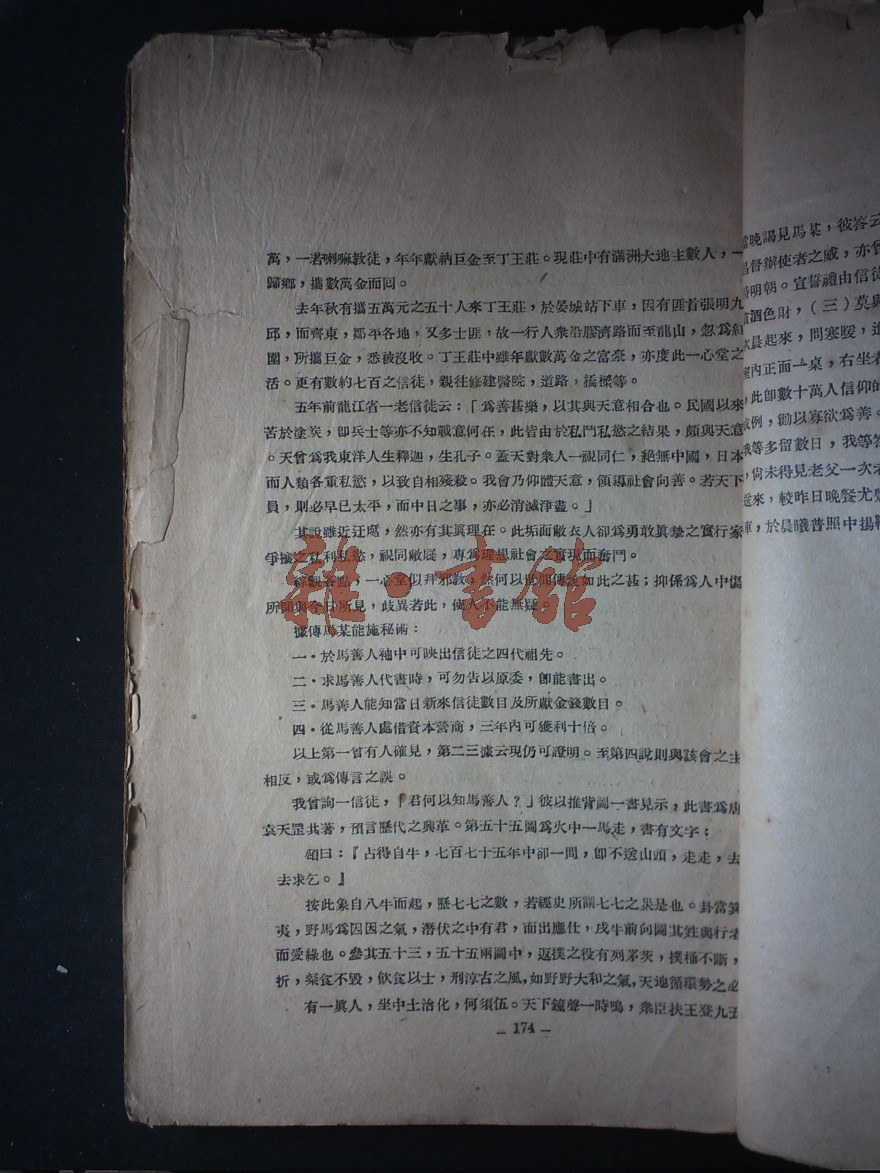 萬，一若喇嘛教徒，年年獻納巨金至丁王莊。現莊中有滿洲大地主數人，一
歸鄉，攜數萬金而回。
去年秋有攜五萬元之五十人來丁王莊，於晏城站下車，因有匪首張明九
邱，而齊東，鄒平各地，又多士匪，故一行人衆沿膠濟路而至龍山，忽爲
圍，所攜巨金，悉被沒收。丁王莊中雖年獻數萬金之富豪，亦度此一心堂之
活。更有數約七百之信徒，親往修建醫院，道路，橋樑等。
五年前龍江省一老信徒云：「爲善甚樂，以其與天意相合也。民國以來
苦於塗炭，卽兵士等亦不知戰意何在，此皆由於私鬥私慾之結果，頗與天意
。天曾爲我東洋人生釋迦，生孔子。蓋天對衆人一視同仁，絕無中國，日本
而人類各重私慾，以致自相殘殺。我會乃仰體天意，領導社會向善。若天下
員，則必早已太平，而中日之事，亦必消滅淨盡。」
其說雖近迂處，然亦有其眞理在。此垢面敝衣人卻爲勇敢眞摯之實行家
爭攘之私利私慾，視同敝屣，專爲理想社會之實現而奮鬥。
綜觀各點，一心堂似拜邪教；然何以世間傳說如此之甚；抑係爲人中傷
所聞與今日所見，歧異若此，使人不能無疑。
據傳馬某能施秘術：
一・於馬善人袖中可映出信徒之四代祖先。
二・求馬善人代書時，可勿告以原委，卽能書出。
三・馬善人能知當日新來信徒數目及所獻金錢數目。
四・從馬善人處借資本營商，三年內可獲利十倍。
以上第一曾有人確見，第二三據云現仍可證明。至第四說則與該會之主
相反，或爲傳言之誤。
我曾詢一信徒，「君何以知馬善人？」彼以推背圖一書見示，此書爲唐
袁天罡共著，預言歷代之興革。第五十五圖爲火中一馬走，書有文字：
頌曰：『占得自牛，七百七十五年中卻一問，卽不送山頭，走走，去
去求乞。』
按此象自八牛而起，歷七七之數，若經史所謂七七之災是也。卦當箕
夷，野馬爲因因之氣，潛伏之中有君，而出應仕，戌牛前向圖其姓與行者
而愛綠也。參其五十三，五十五兩圖中，返撲之役有列茅茨，撲桶不斷，
折，粢食不毀，飲食以士，刑淳古之風，如野野大和之氣，天地循環勢之必
有一眞人，坐中土治化，何須伍。天下鐘聲一時鳴，衆臣扶王登九五
— 174 —
當晚謁見馬某，彼答云
督辦使者之威，亦曾
明朝。宣誓禮由信徒
酒色財，（三）莫與
晨起來，問寒暖，進
內正面一桌，右坐者
，此卽數十萬人信仰的
例，勸以寡欲爲善。
我等多留數日，我等答
，尙未得見老父一次者
送來，較昨日晚餐尤豐
車，於晨曦普照中揚鞭
雜・書館